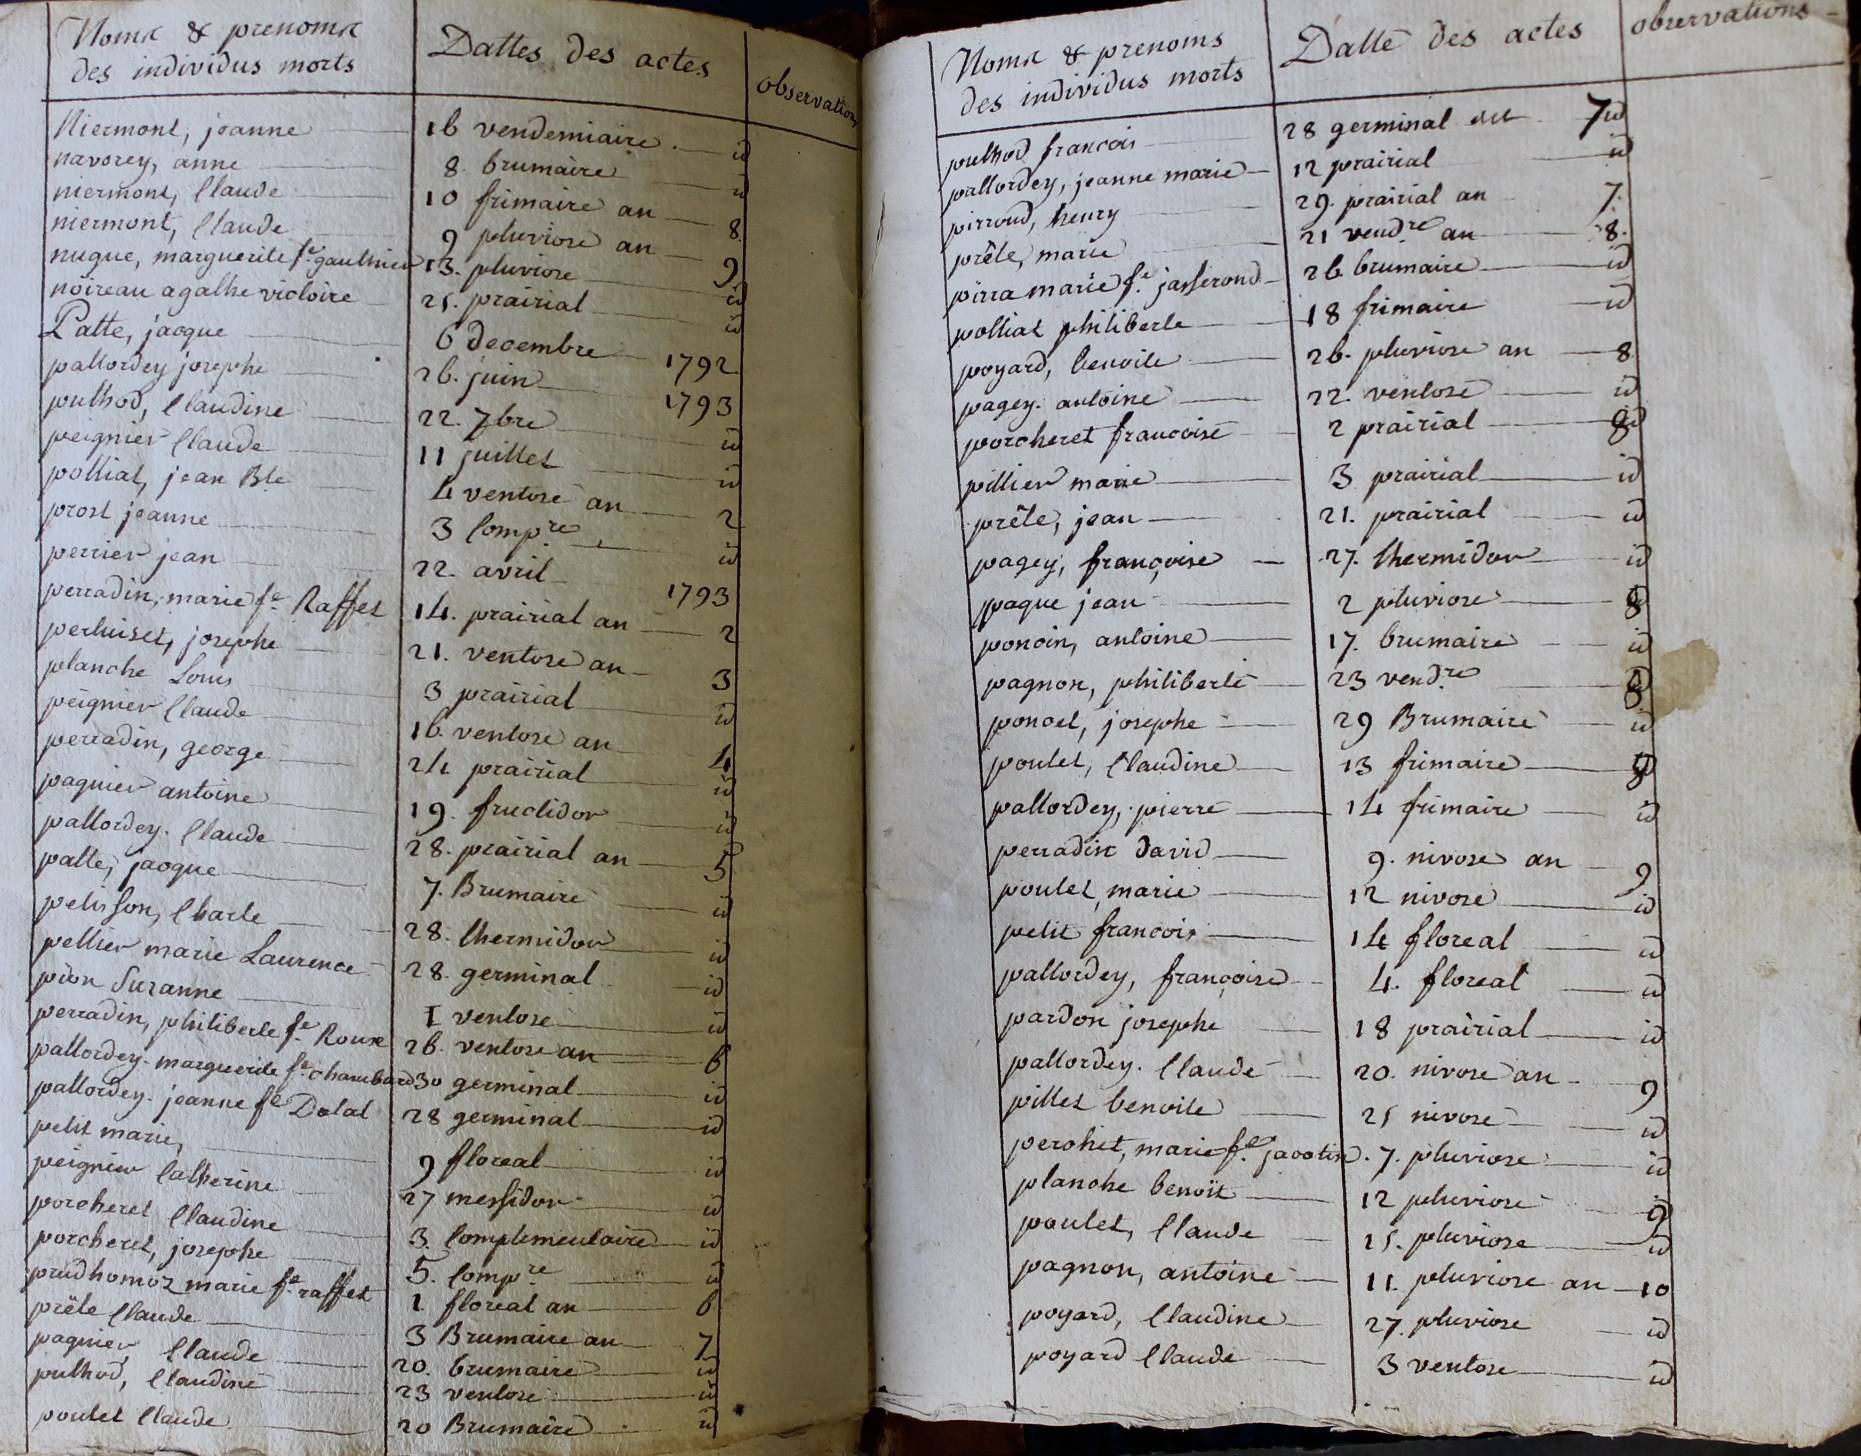 Noms & prenoms
des individus morts
Dattes des actes
observations
Niermont, jeanne 16 vendemiaire id
navorey, anne 8. brumaire id
niermont, Claude 10 frimaire an 8
niermont, Claude 9 pluviose an 9
nuque, marguerite fe. gauthier 13. pluviose id
noireau agathe victoire 25. prairial id
Patte, jacque 6 decembre 1792
pallordey josephe 26. juin 1793
puthod, Claudine 22. 7bre id
peignier Claude 11 juillet id
polliat, jean Bte 4 ventose an 2
prost jeanne 3 Compre id
perrier jean 22. avril 1793
perradin, marie fe. Raffet 14. prairial an 2
pertuiset, josephe 21. ventose an 3
planche Louis 3 prairial id
peignier Claude 16. ventose an 4
perradin, george 24 prairial id
pagnier antoine 19. fructidor id
pallordey. Claude 28. prairial an 5
patte, jacque 7. Brumaire id
pelisson, Charle 28. thermidor id
pellier marie Laurence 28. germinal id
pion Suzanne 1 ventose id
perradin, philiberte fe. Roux 26. ventose an 6
pallordey. marguerite fe. chambard 30 germinal id
pallordey. jeanne fe Dalal 28 germinal id
petit marie, 9 floreal id
peignier Catherine 27 messidor id
porcheret Claudine 3. Complementaire id
porcheret, josephe 5. Compre id
prudhomoz marie fe. raffet 1. floreal an 6
prêle Claude 3 Brumaire an 7
pagnier, Claude 20. brumaire id
puthod, Claudine 23 ventose id
poulet Claude 20 Brumaire id
Noms & prenoms
des individus morts
Datte des actes
observations
puthod francois 28 germinal an 7
pallordey, jeanne marie 12 prairial id
pirroud, henry 29. prairial an 7.
prêle, marie 21 vendre an 8.
pirra marie fe. jasserond 26 brumaire id
polliat philiberte 18 frimaire id
poyard, benoite 26. pluviose an 8
pagey. antoine 22. ventose id
porcheret francoise 2 prairial 8
pillier marie 3 prairial id
prêle, jean 21. prairial id
pagey, françoise 27. thermidor id
paque jean 2 pluviose 8
poncin, antoine 17. brumaire id
pagnon, philiberte 23 vendre 8
poncet, josephe 29 Brumaire id
poulet, Claudine 13 frimaire
pallordey, pierre 14 frimaire id
perradin David 9. nivose an 9
poulet, marie 12 nivose id
petit francois 14 floreal id
pallordey, françoise 4. floreal id
pardon josephe 18 prairial id
pallordey. Claude 20. nivose an 9
pillet benoite 25 nivose id
perchet, marie fe. jacotin 7. pluviose id
planche benoit 12 pluviose 9
poulet, Claude 15. pluviose id
pagnon, antoine 11. pluviose an 10
poyard, Claudine 27. pluviose id
poyard Claude 3 ventose id